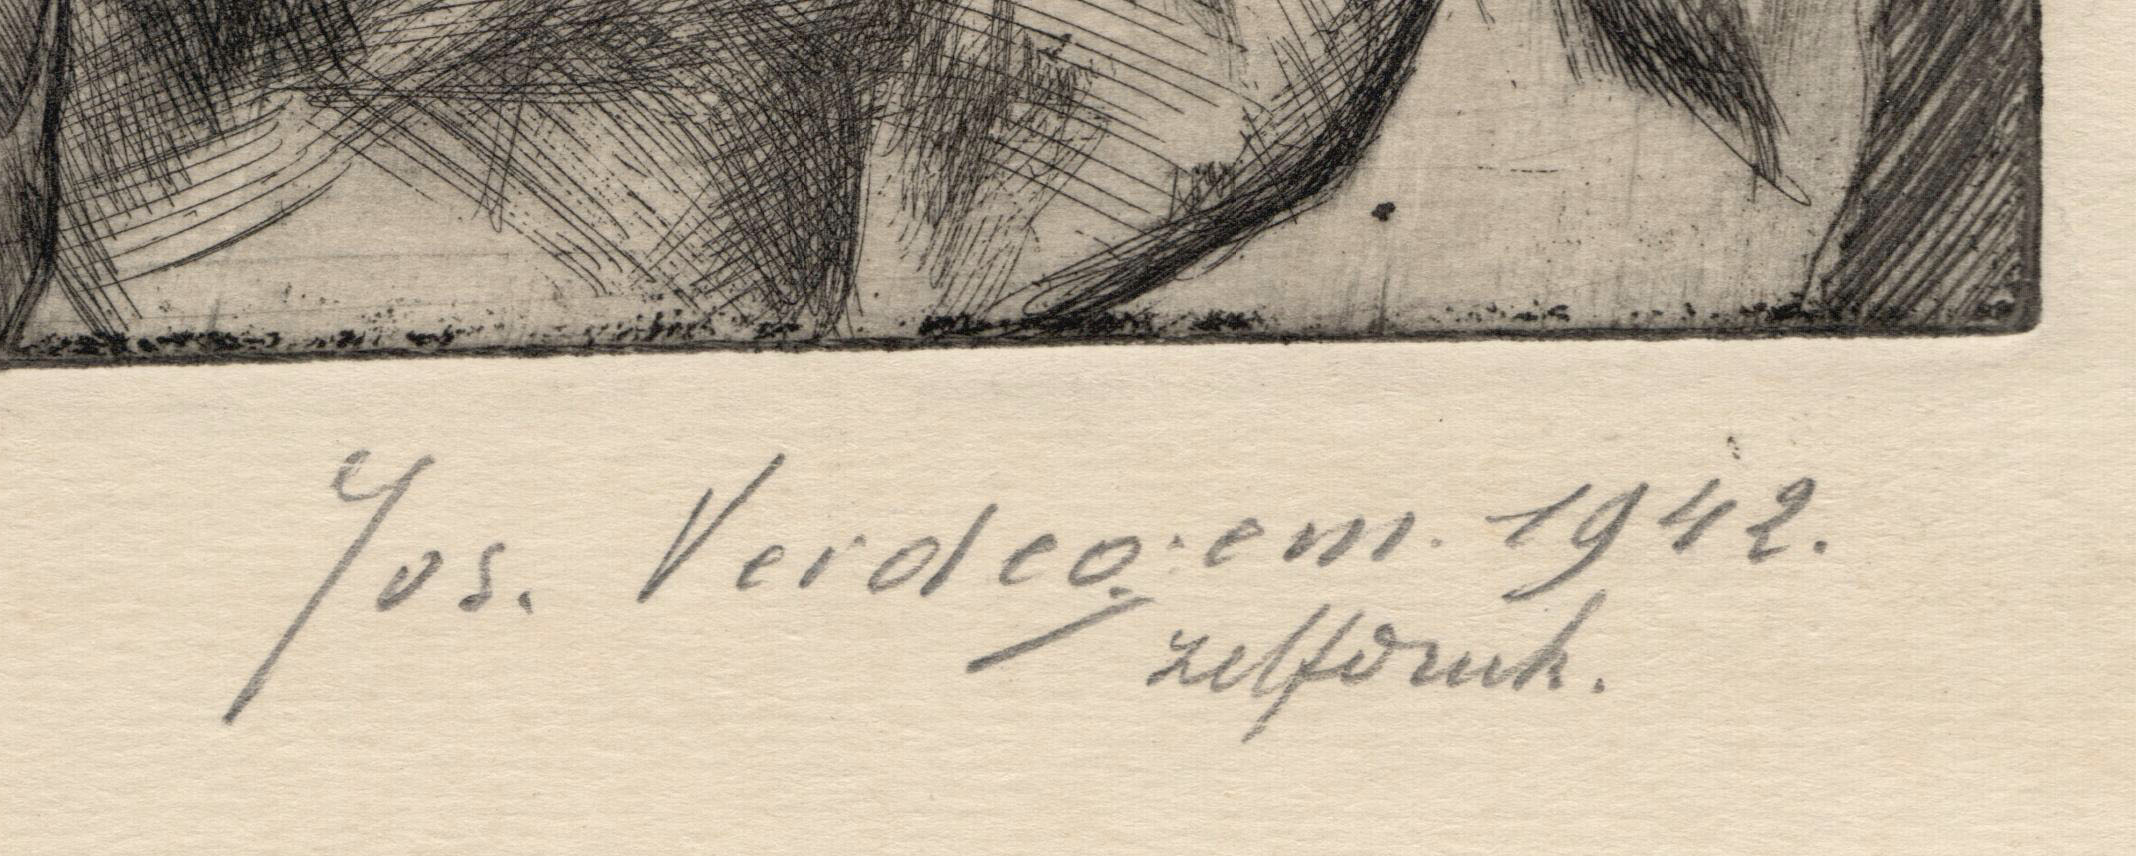 Jos. Verdegem. 1942.
zelfdruk.